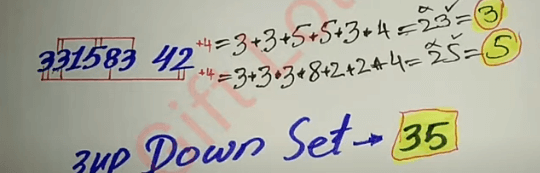 +4 = 3+3+5+5+3+4 = 23 = 3
331583 42
+4 = 3+3+3+8+2+2+4 = 25 = 5
3up Down Set → 35